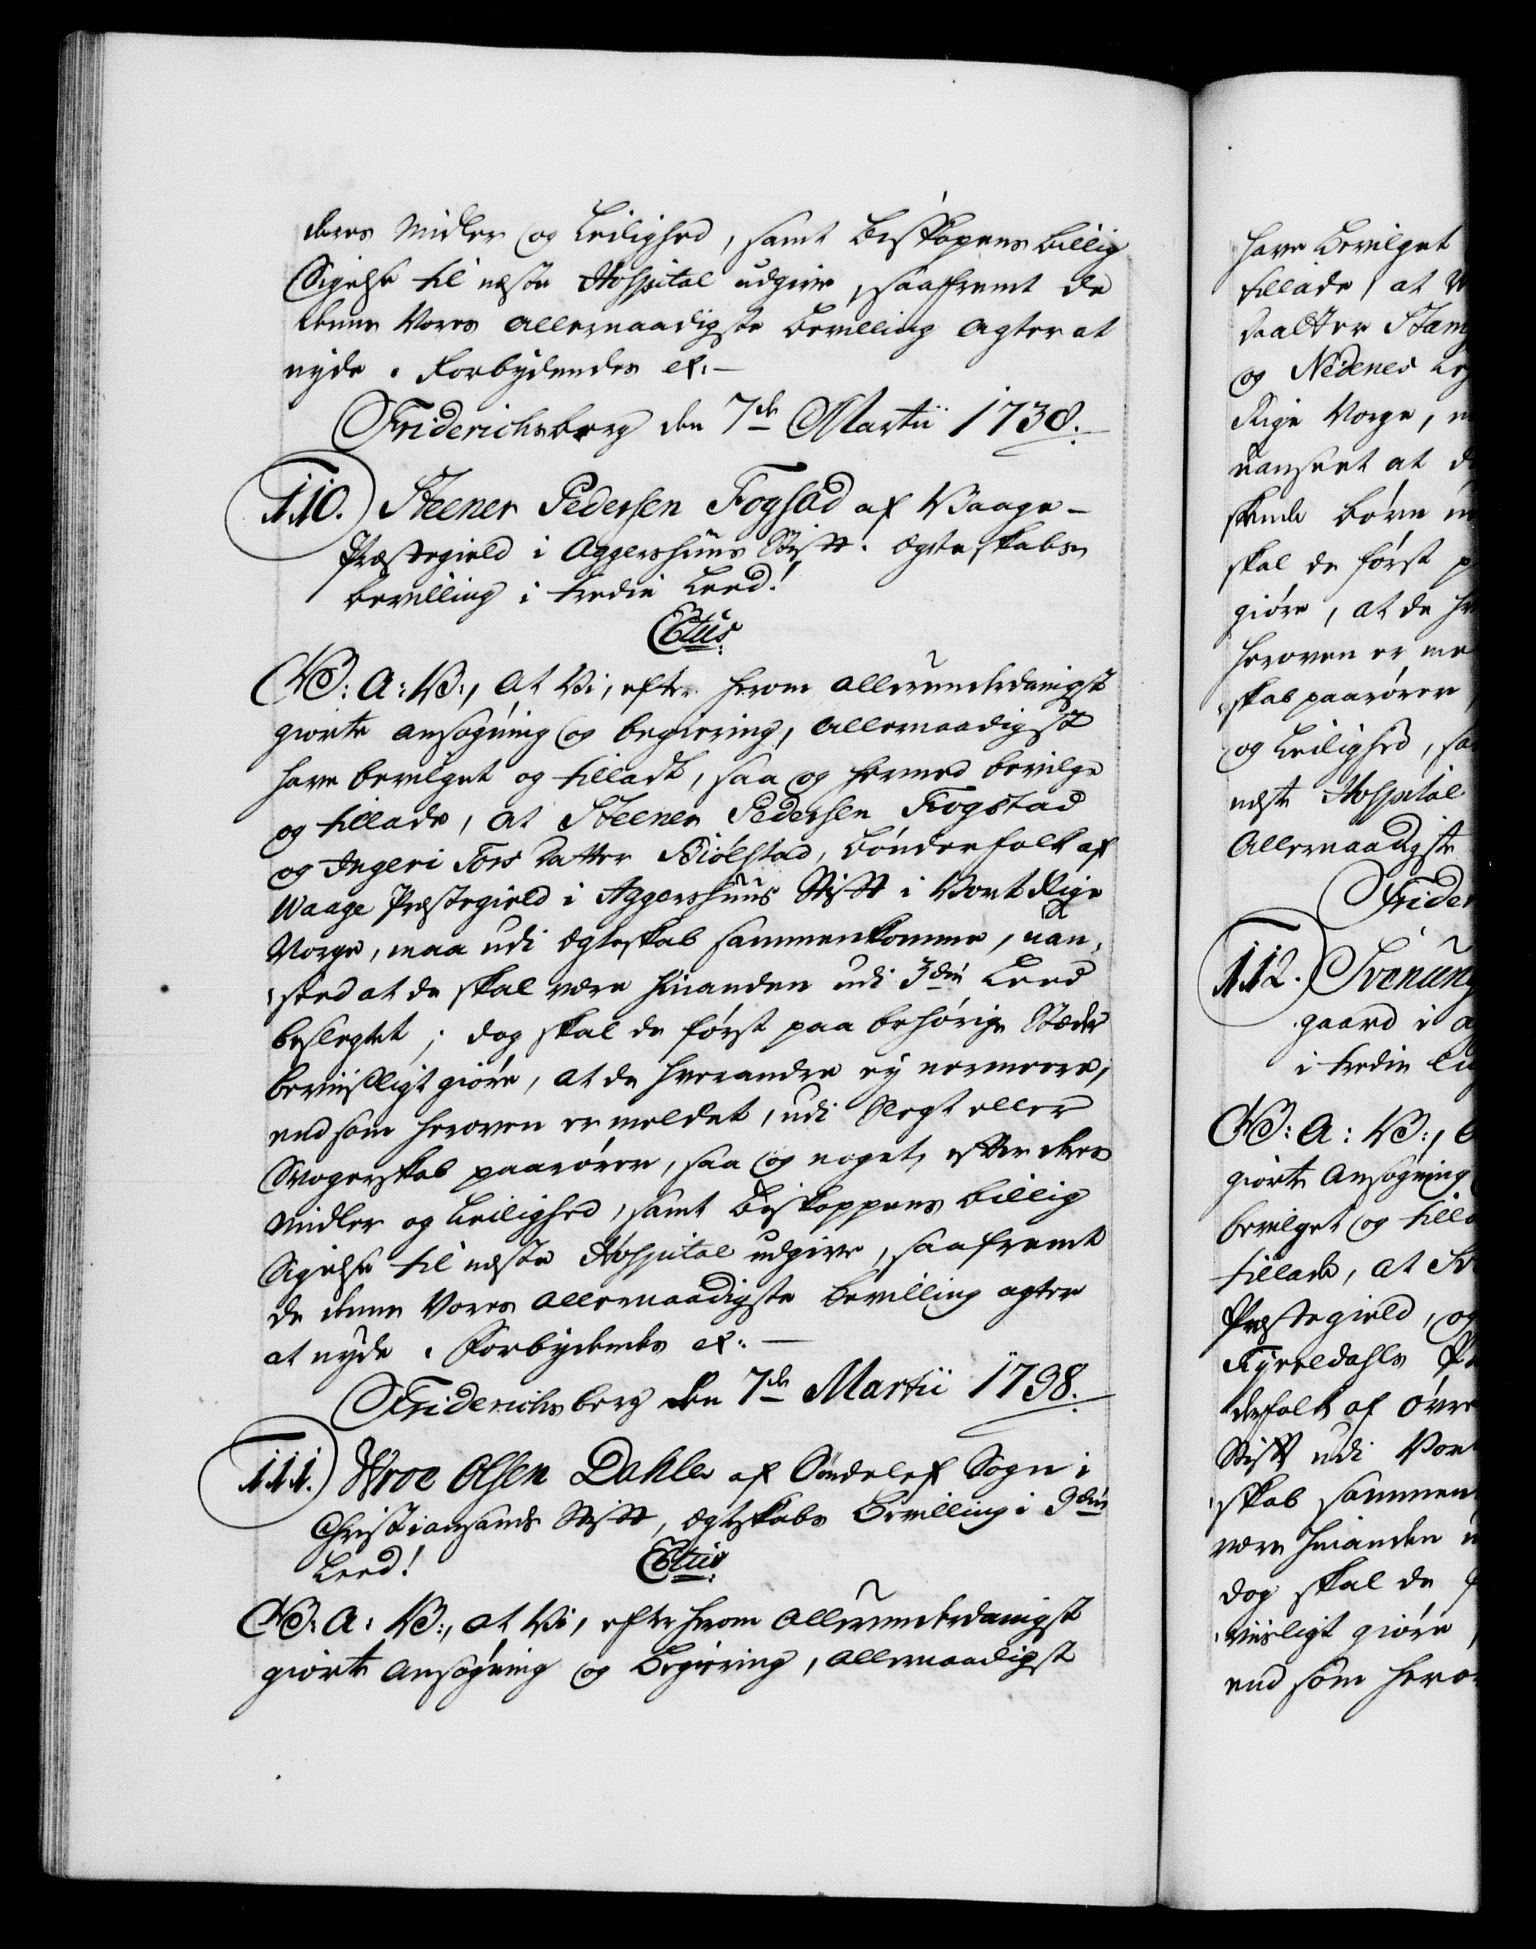 deres Midler og Leilighed, samt Biskopens billig
Sigelse til neste Hospital udgive, saafremt de
denne Vores allernaadigste bevilling agter at
nyde. Forbydendes etc:
Friderichsberg den 7de Martii 1738.
110. Steener Pedersen Fogstad af Waage-
Præstegield i Aggershuus Stift. Egteskabs
bevilling i tredie Leed!
Cotus
V: A: V:, at Vi, efter herom allerunderdanigst
giorte ansøgning og begiering, allernaadigst
have bevilget og tilladt, saa og hermed bevilge
og tillade, at Steener Pedersen Fogstad
og Ingeri Tors Datter Kiølstad, bønderfolk af
Waage Præstegield i Aggershuus Stift i Vort Rige
Norge, maa udi Egteskab sammenkomme, uan-
seed at de skal være hinanden udi 3die Leed
beslegtet; dog skal de først paa behørige Stæder
beviisligt giøre, at de hverandre ey nermeere,
end som heroven er meldet, udi Slegt eller
Svogerskab paarører, saa og noget efter deres
Midler og Leilighed, samt Biskoppens billig
Sigelse til neste Hospital udgive, saafremt
de denne Vores allernaadigste bevilling agter
at nyde. Forbydendes etc:
Friderichsberg den 7de Martii 1738.
111. Wroe Olsen Dahle af Søndelef Sogn i
Christiansands Stift, Egteskabs Bevilling i 3die
Leed!
Cotus
V: A: V:, at Vi, efter herom allerunderdanigst
giorte ansøgning og Begiering, allernaadigst
have bevilget
tillade, at
Daatter
og Nedenes
Rige Norge,
uanseet at
skende børn
skal de først
giøre, at de
heroven er
skab paarører,
og Leilighed,
neste Hospital
Allernaadigste
112.
gaard i
i tredie
V: A: V:,
giorte Ansøgning
bevilget og
tillade, at
Præstegield, og
derfolk af Øvre
Stift udi
skab sammen
være hinanden
dog skal de
viisligt giøre,
end som